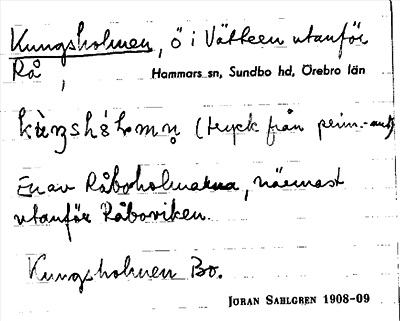 Kungsholmen, ö i Vättern utanför
Rå, Hammars sn, Sundbo hd, Örebro län
(tryck från prim.-ant)
En av Råboholmarna, närmast
utanför Råboviken.
Kungsholmen Bo.
JORAN SAHLGREN 1908-09